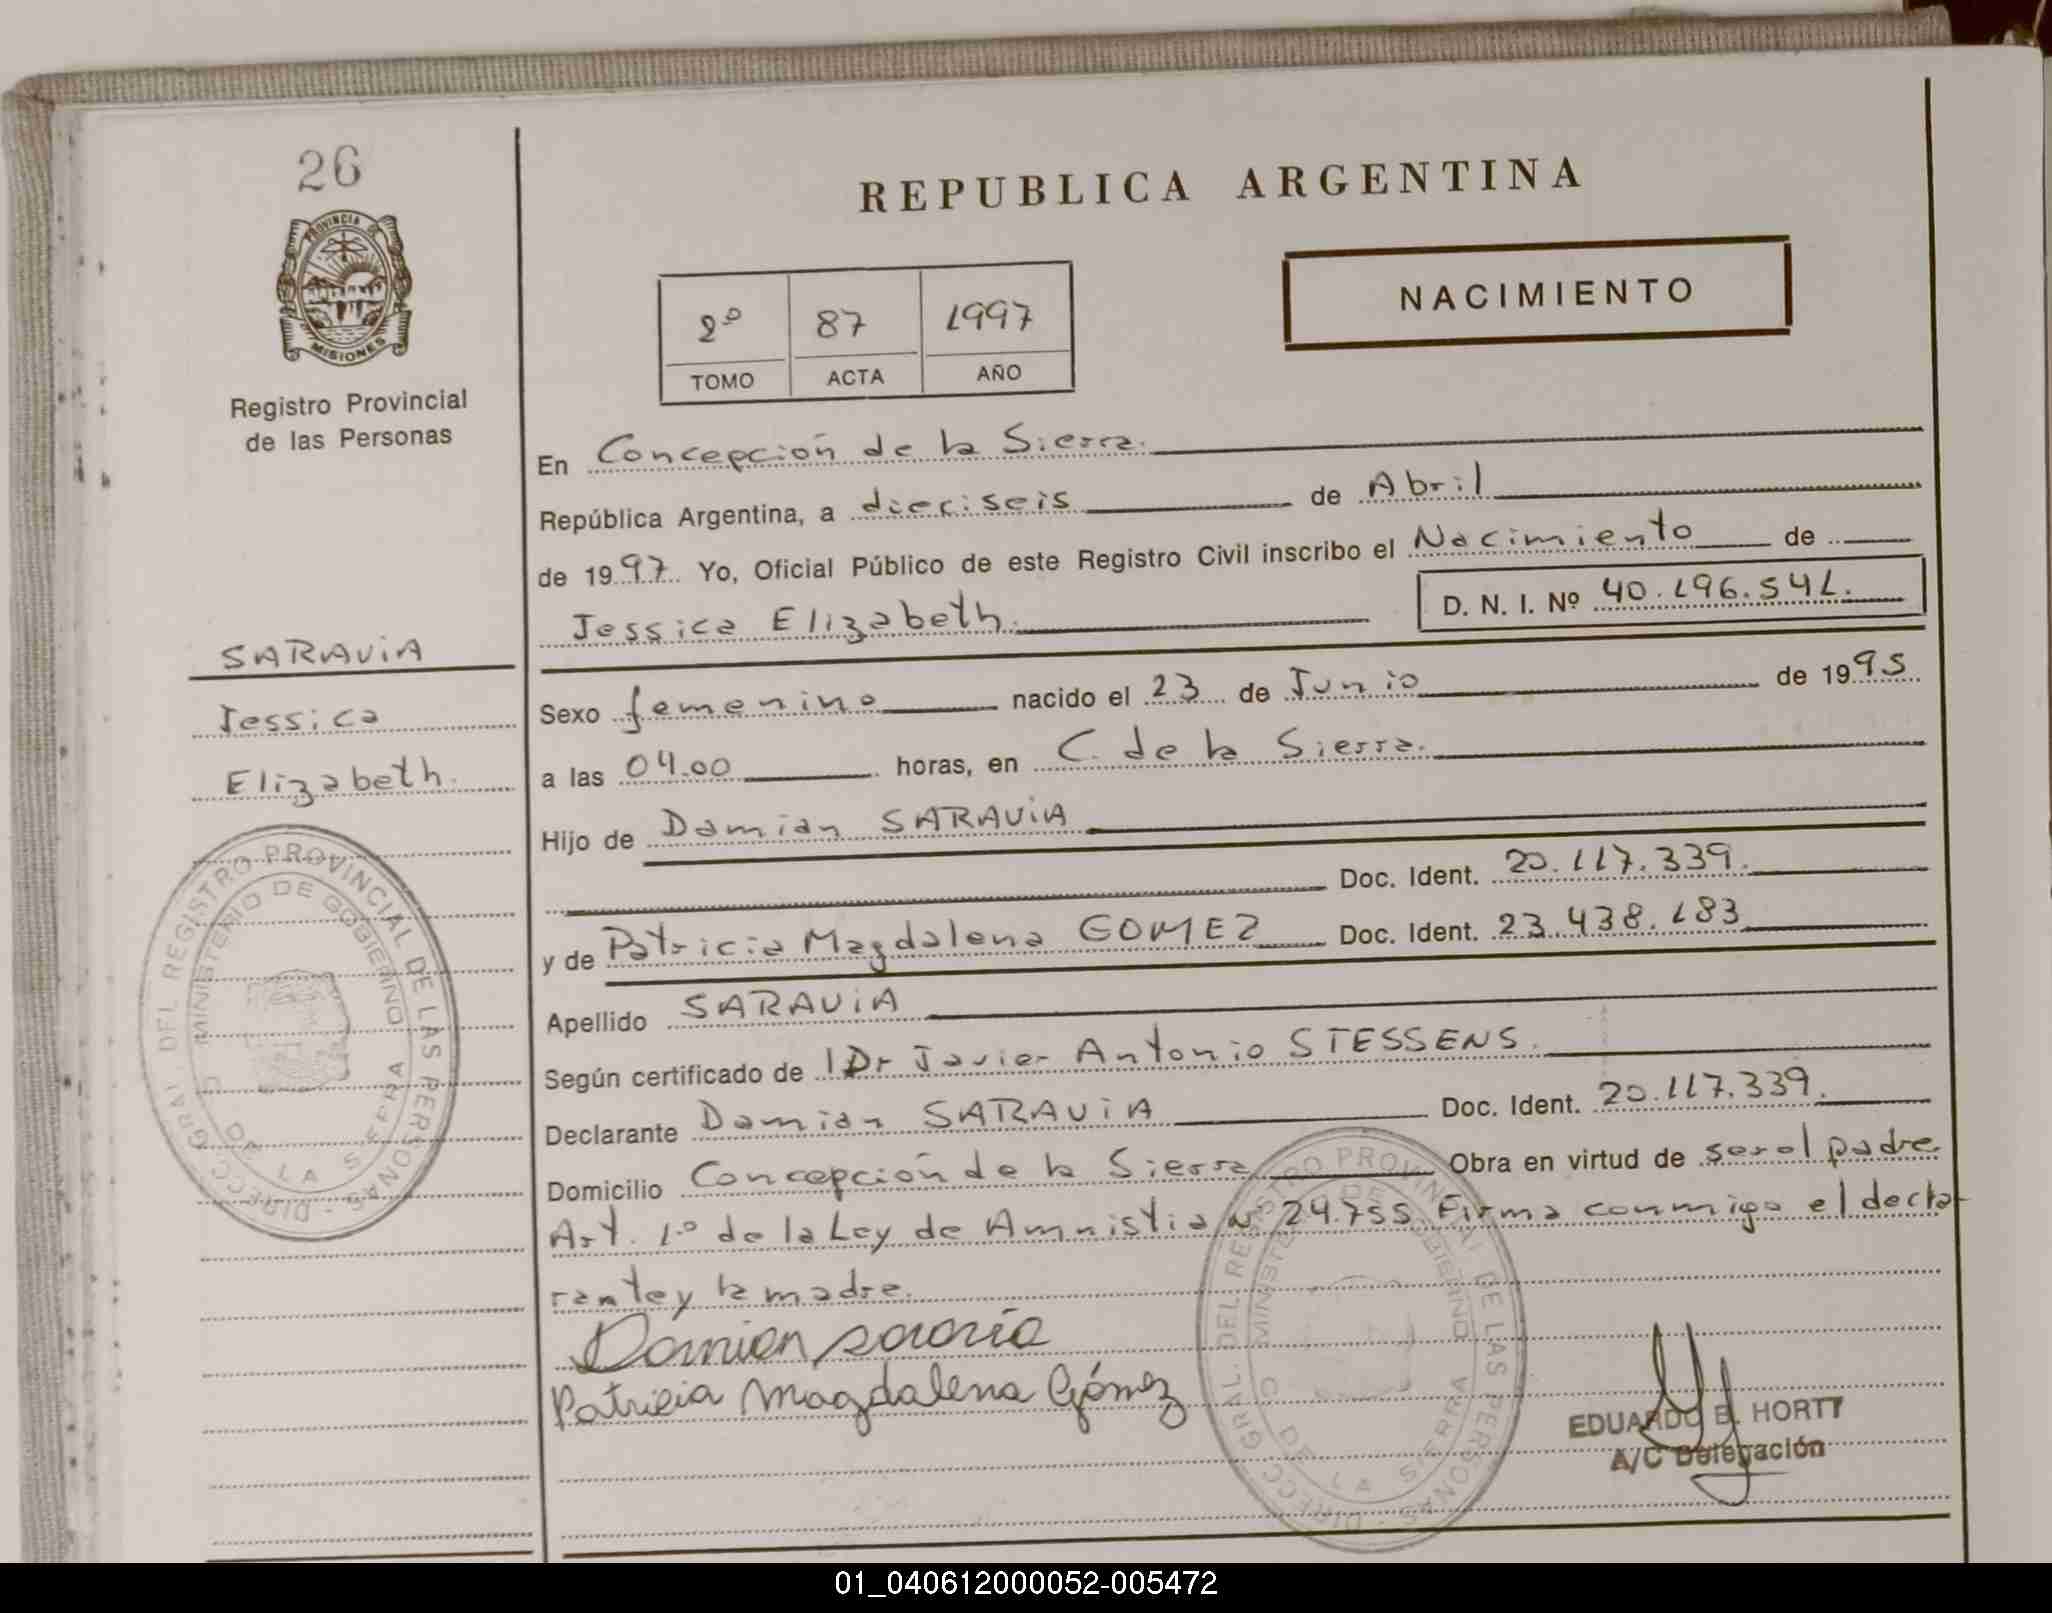 26
PROVINCIA DE
MISIONES
Registro Provincial
de las Personas
SARAVIA
Jessica
Elizabeth.
DIRECC. GRAL. DEL REGISTRO PROVINCIAL DE LAS PERSONAS
MINISTERIO DE GOBIERNO
C. DE LA SIERRA
REPUBLICA ARGENTINA
2º 87 1997
TOMO ACTA AÑO
NACIMIENTO
En Concepción de la Sierra.
República Argentina, a dieciseis de Abril
de 1997 Yo, Oficial Público de este Registro Civil inscribo el Nacimiento de
Jessica Elizabeth. D. N. I. Nº 40.196.541.
Sexo femenino nacido el 23 de Junio de 1995
a las 04.00 horas, en C. de la Sierra.
Hijo de Damian SARAVIA
Doc. Ident. 20.117.339.
y de Patricia Magdalena GOMEZ Doc. Ident. 23.438.183
Apellido SARAVIA
Según certificado de Dr Javier Antonio STESSENS.
Declarante Damian SARAVIA Doc. Ident. 20.117.339.
Domicilio Concepción de la Sierra Obra en virtud de ser el padre
Art. 1º de la Ley de Amnistia Nº 24.755 Firma conmigo el decla-
rante y la madre.
Damian saravia
Patricia Magdalena Gómez
DIRECC. GRAL. DEL REGISTRO PROVINCIAL DE LAS PERSONAS
MINISTERIO DE GOBIERNO
C. DE LA SIERRA
EDUARDO B. HORTT
A/C Delegación
01_040612000052-005472